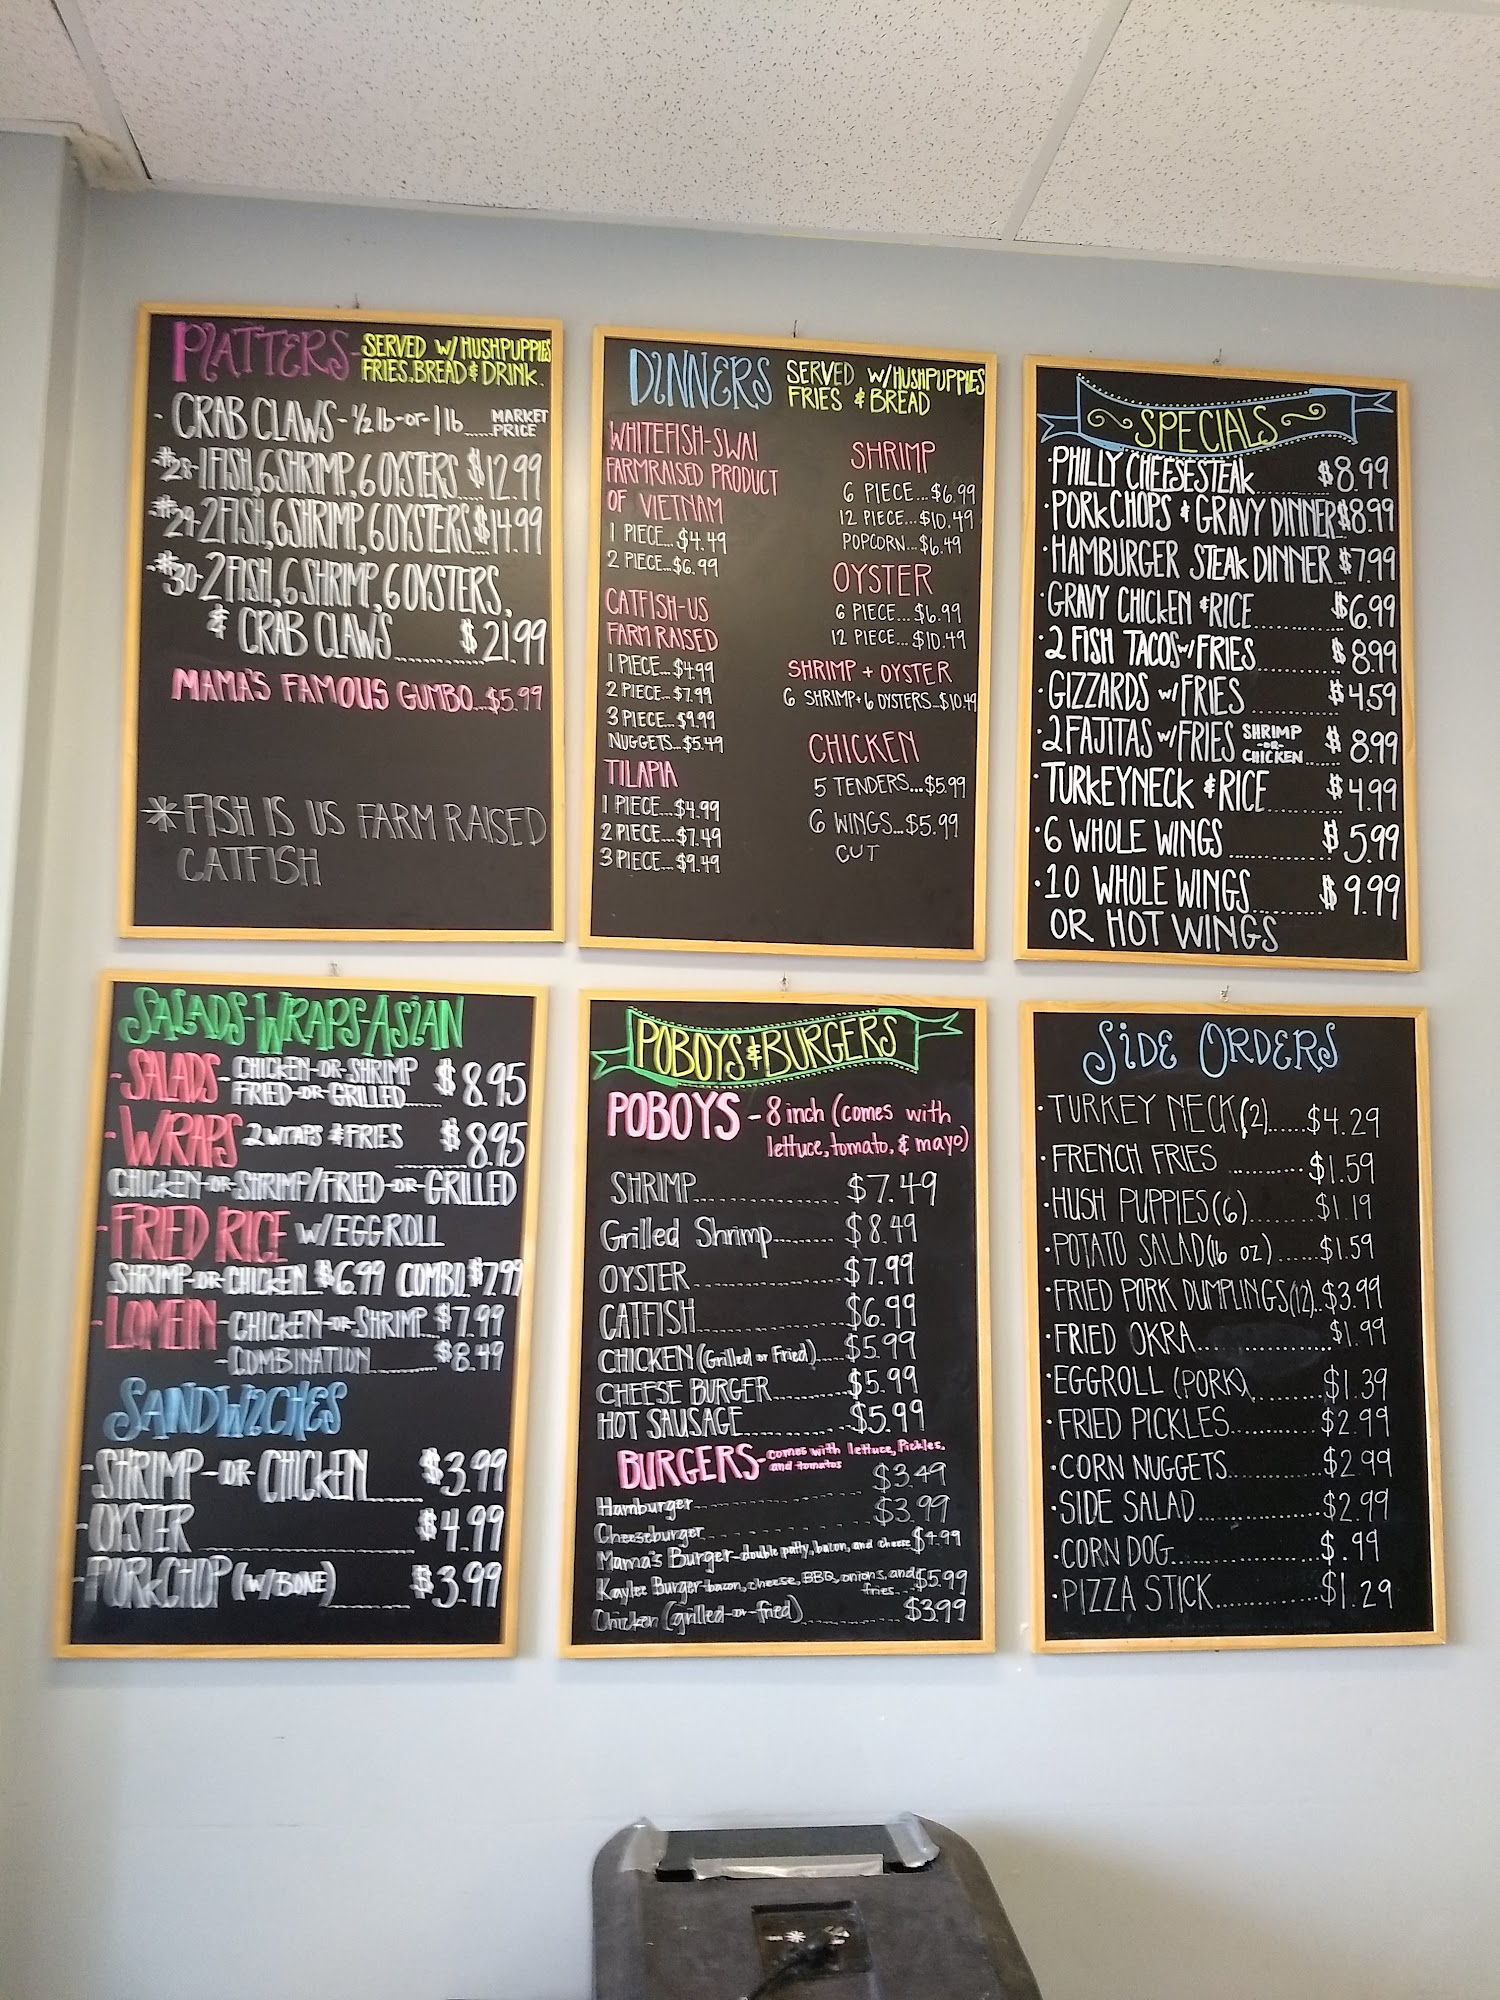 PLATTERS- SERVED W/ HUSHPUPPIES
FRIES, BREAD & DRINK
- CRAB CLAWS - 1/2 lb-or-1 lb...... MARKET PRICE
#28-1 FISH, 6 SHRIMP, 6 OYSTERS $12.99
#29-2 FISH, 6 SHRIMP, 6 OYSTERS $14.99
#30-2 FISH, 6 SHRIMP, 6 OYSTERS,
& CRAB CLAWS............ $21.99
MAMA'S FAMOUS GUMBO...$5.99
*FISH IS US FARM RAISED
CATFISH
DINNERS SERVED W/HUSHPUPPIES
FRIES & BREAD
WHITEFISH-SWAI
FARMRAISED PRODUCT
OF VIETNAM
1 PIECE...$4.49
2 PIECE...$6.99
CATFISH-US
FARM RAISED
1 PIECE...$4.99
2 PIECE...$7.99
3 PIECE...$9.99
NUGGETS...$5.49
TILAPIA
1 PIECE...$4.99
2 PIECE...$7.49
3 PIECE...$9.49
SHRIMP
6 PIECE...$6.99
12 PIECE...$10.49
POPCORN...$6.49
OYSTER
6 PIECE...$6.99
12 PIECE...$10.49
SHRIMP + OYSTER
6 SHRIMP+6 OYSTERS...$10.49
CHICKEN
5 TENDERS...$5.99
6 WINGS...$5.99
CUT
SPECIALS
·PHILLY CHEESESTEAK.......... $8.99
·PORKCHOPS & GRAVY DINNER $8.99
·HAMBURGER STEAK DINNER $7.99
·GRAVY CHICKEN & RICE.......... $6.99
·2 FISH TACOS W/ FRIES.......... $8.99
·GIZZARDS W/ FRIES.......... $4.59
·2 FAJITAS W/ FRIES SHRIMP -OR- CHICKEN..... $8.99
·TURKEYNECK & RICE.......... $4.99
·6 WHOLE WINGS.......... $5.99
·10 WHOLE WINGS.......... $9.99
OR HOT WINGS
SALADS-WRAPS-ASIAN
-SALADS- CHICKEN-OR-SHRIMP
FRIED-OR-GRILLED...... $8.95
-WRAPS 2 WRAPS & FRIES .......... $8.95
CHICKEN-OR-SHRIMP/FRIED-OR-GRILLED
-FRIED RICE W/EGGROLL
SHRIMP-OR-CHICKEN $6.99 COMBO $7.99
-LOMEIN-CHICKEN-OR-SHRIMP...$7.99
-COMBINATION.......... $8.49
SANDWICHES
-SHRIMP-OR-CHICKEN.......... $3.99
-OYSTER.......... $4.99
-PORKCHOP (W/BONE).......... $3.99
POBOYS & BURGERS
POBOYS - 8 inch (comes with
lettuce, tomato, & mayo)
SHRIMP.......... $7.49
Grilled Shrimp.......... $8.49
OYSTER.......... $7.99
CATFISH.......... $6.99
CHICKEN (Grilled or Fried)...... $5.99
CHEESE BURGER.......... $5.99
HOT SAUSAGE.......... $5.99
BURGERS-comes with lettuce, Pickles,
and tomatos
Hamburger.......... $3.49
Cheeseburger.......... $3.99
Mama's Burger-double patty, bacon, and cheese $4.99
Kaylee Burger-bacon, cheese, BBQ, onions, and
fries...$5.99
Chicken (grilled-or-fried).......... $3.99
SIDE ORDERS
·TURKEY NECK(2)......$4.29
·FRENCH FRIES ..........$1.59
·HUSH PUPPIES(6)........$1.19
·POTATO SALAD(16 oz)......$1.59
·FRIED PORK DUMPLINGS(12)..$3.99
·FRIED OKRA..........$1.99
·EGGROLL (PORK)..........$1.39
·FRIED PICKLES..........$2.99
·CORN NUGGETS..........$2.99
·SIDE SALAD..........$2.99
·CORN DOG..........$.99
·PIZZA STICK..........$1.29